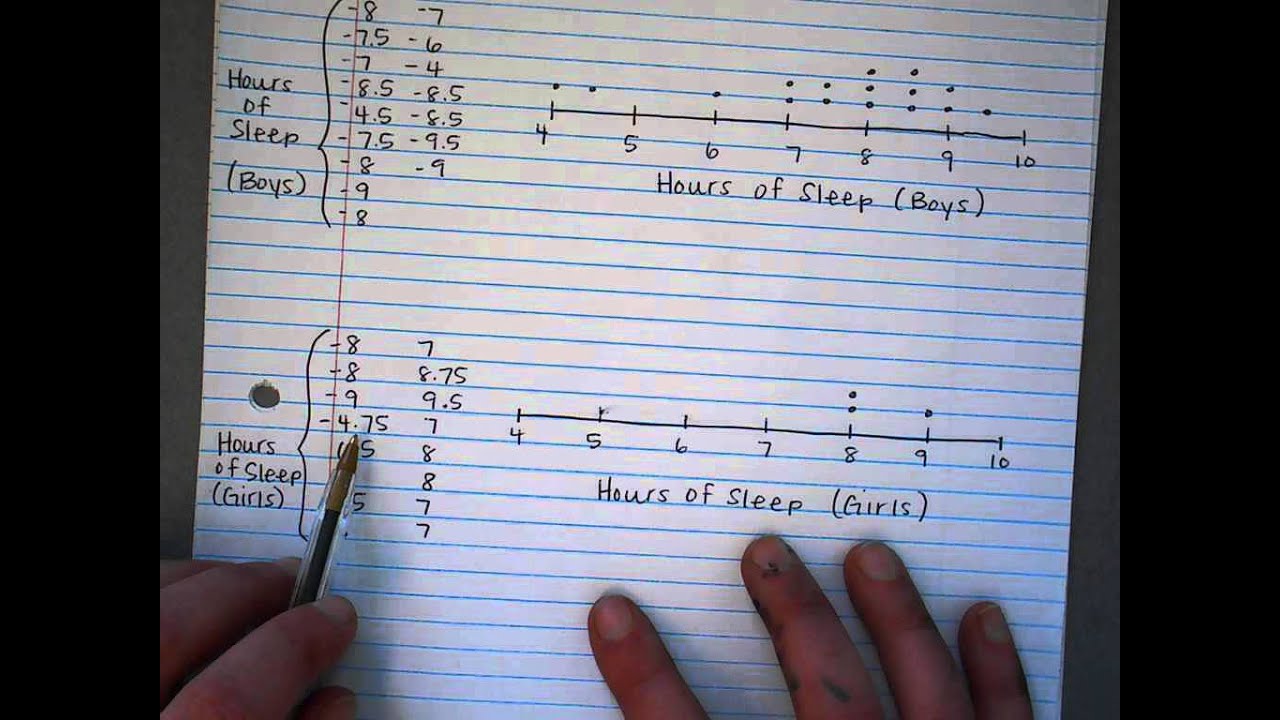 -8 -7
-7.5 -6
-7 -4
-8.5 -8.5
-4.5 -8.5
-7.5 -9.5
-8 -9
-9
-8
Hours
of
Sleep
(Boys)
4 5 6 7 8 9 10
Hours of Sleep (Boys)
-8 7
-8 8.75
-9 9.5
-4.75 7
8
8
7
7
Hours
of Sleep
(Girls)
4 5 6 7 8 9 10
Hours of Sleep (Girls)